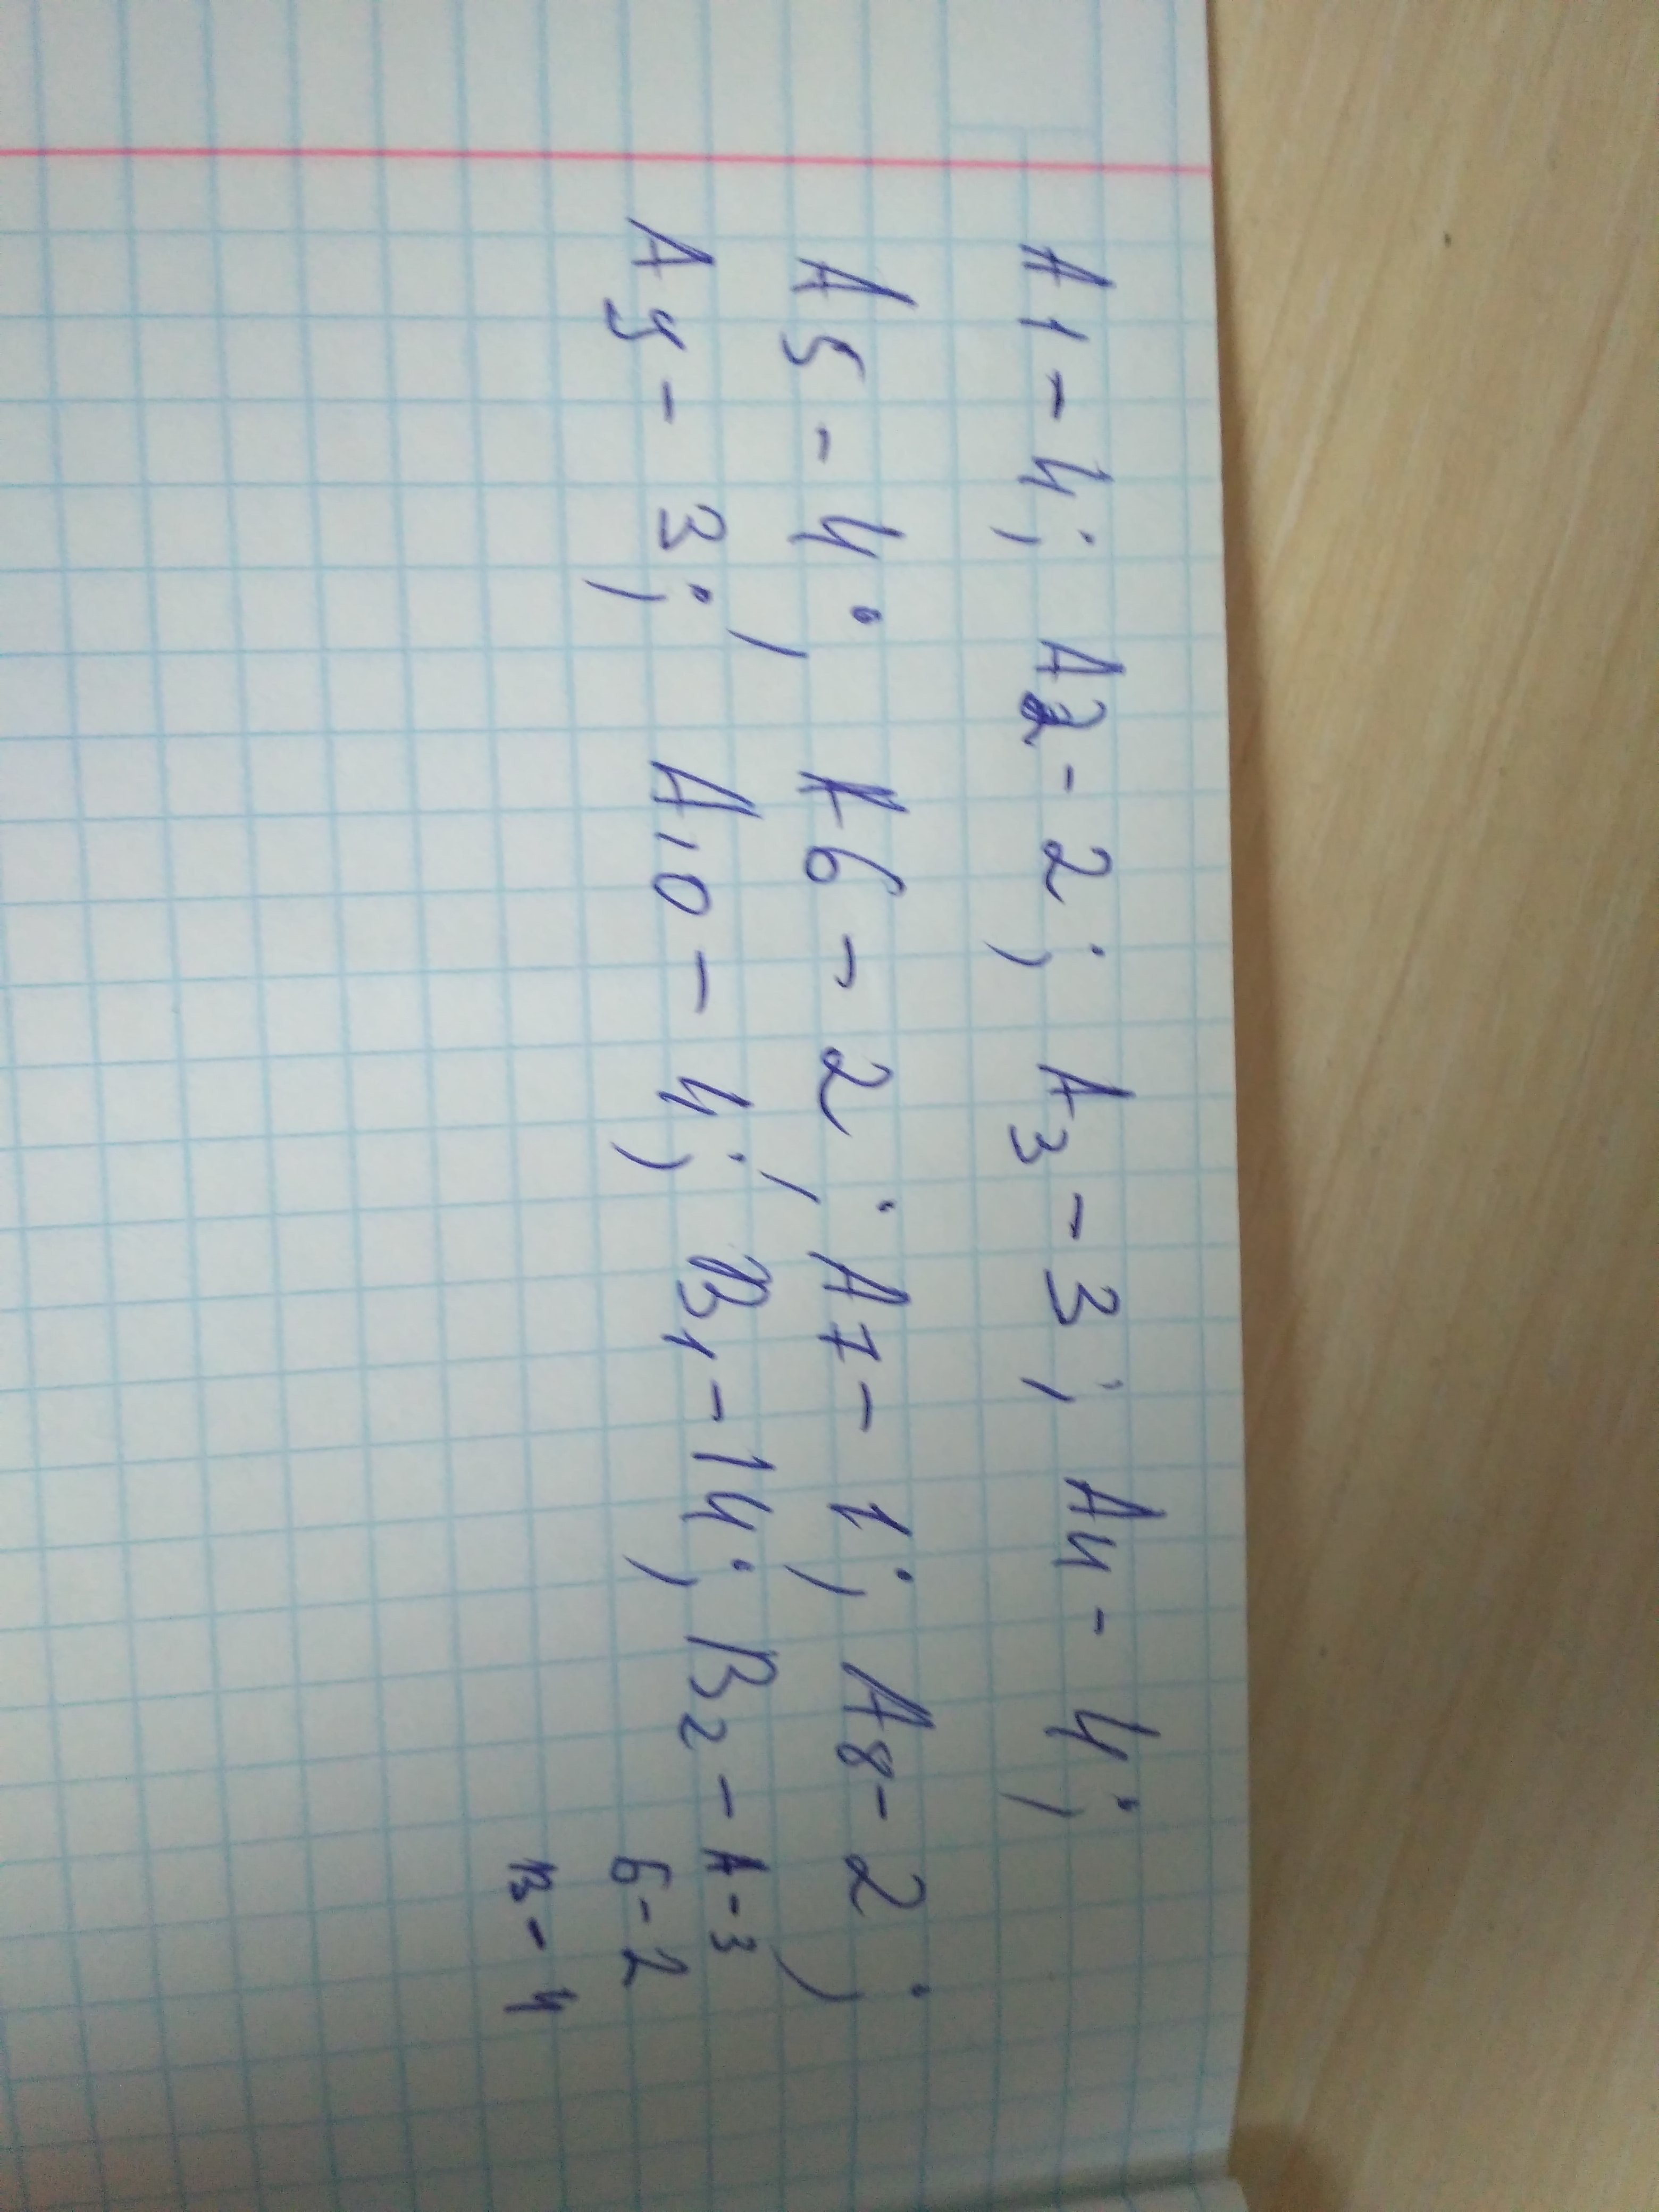 А1 - 4; А2 - 2; А3 - 3; А4 - 4;
А5 - 4; А6 - 2; А7 - 1; А8 - 2;
А9 - 3; А10 - 4; В1 - 14; В2 - А - 3
Б - 2
В - 4